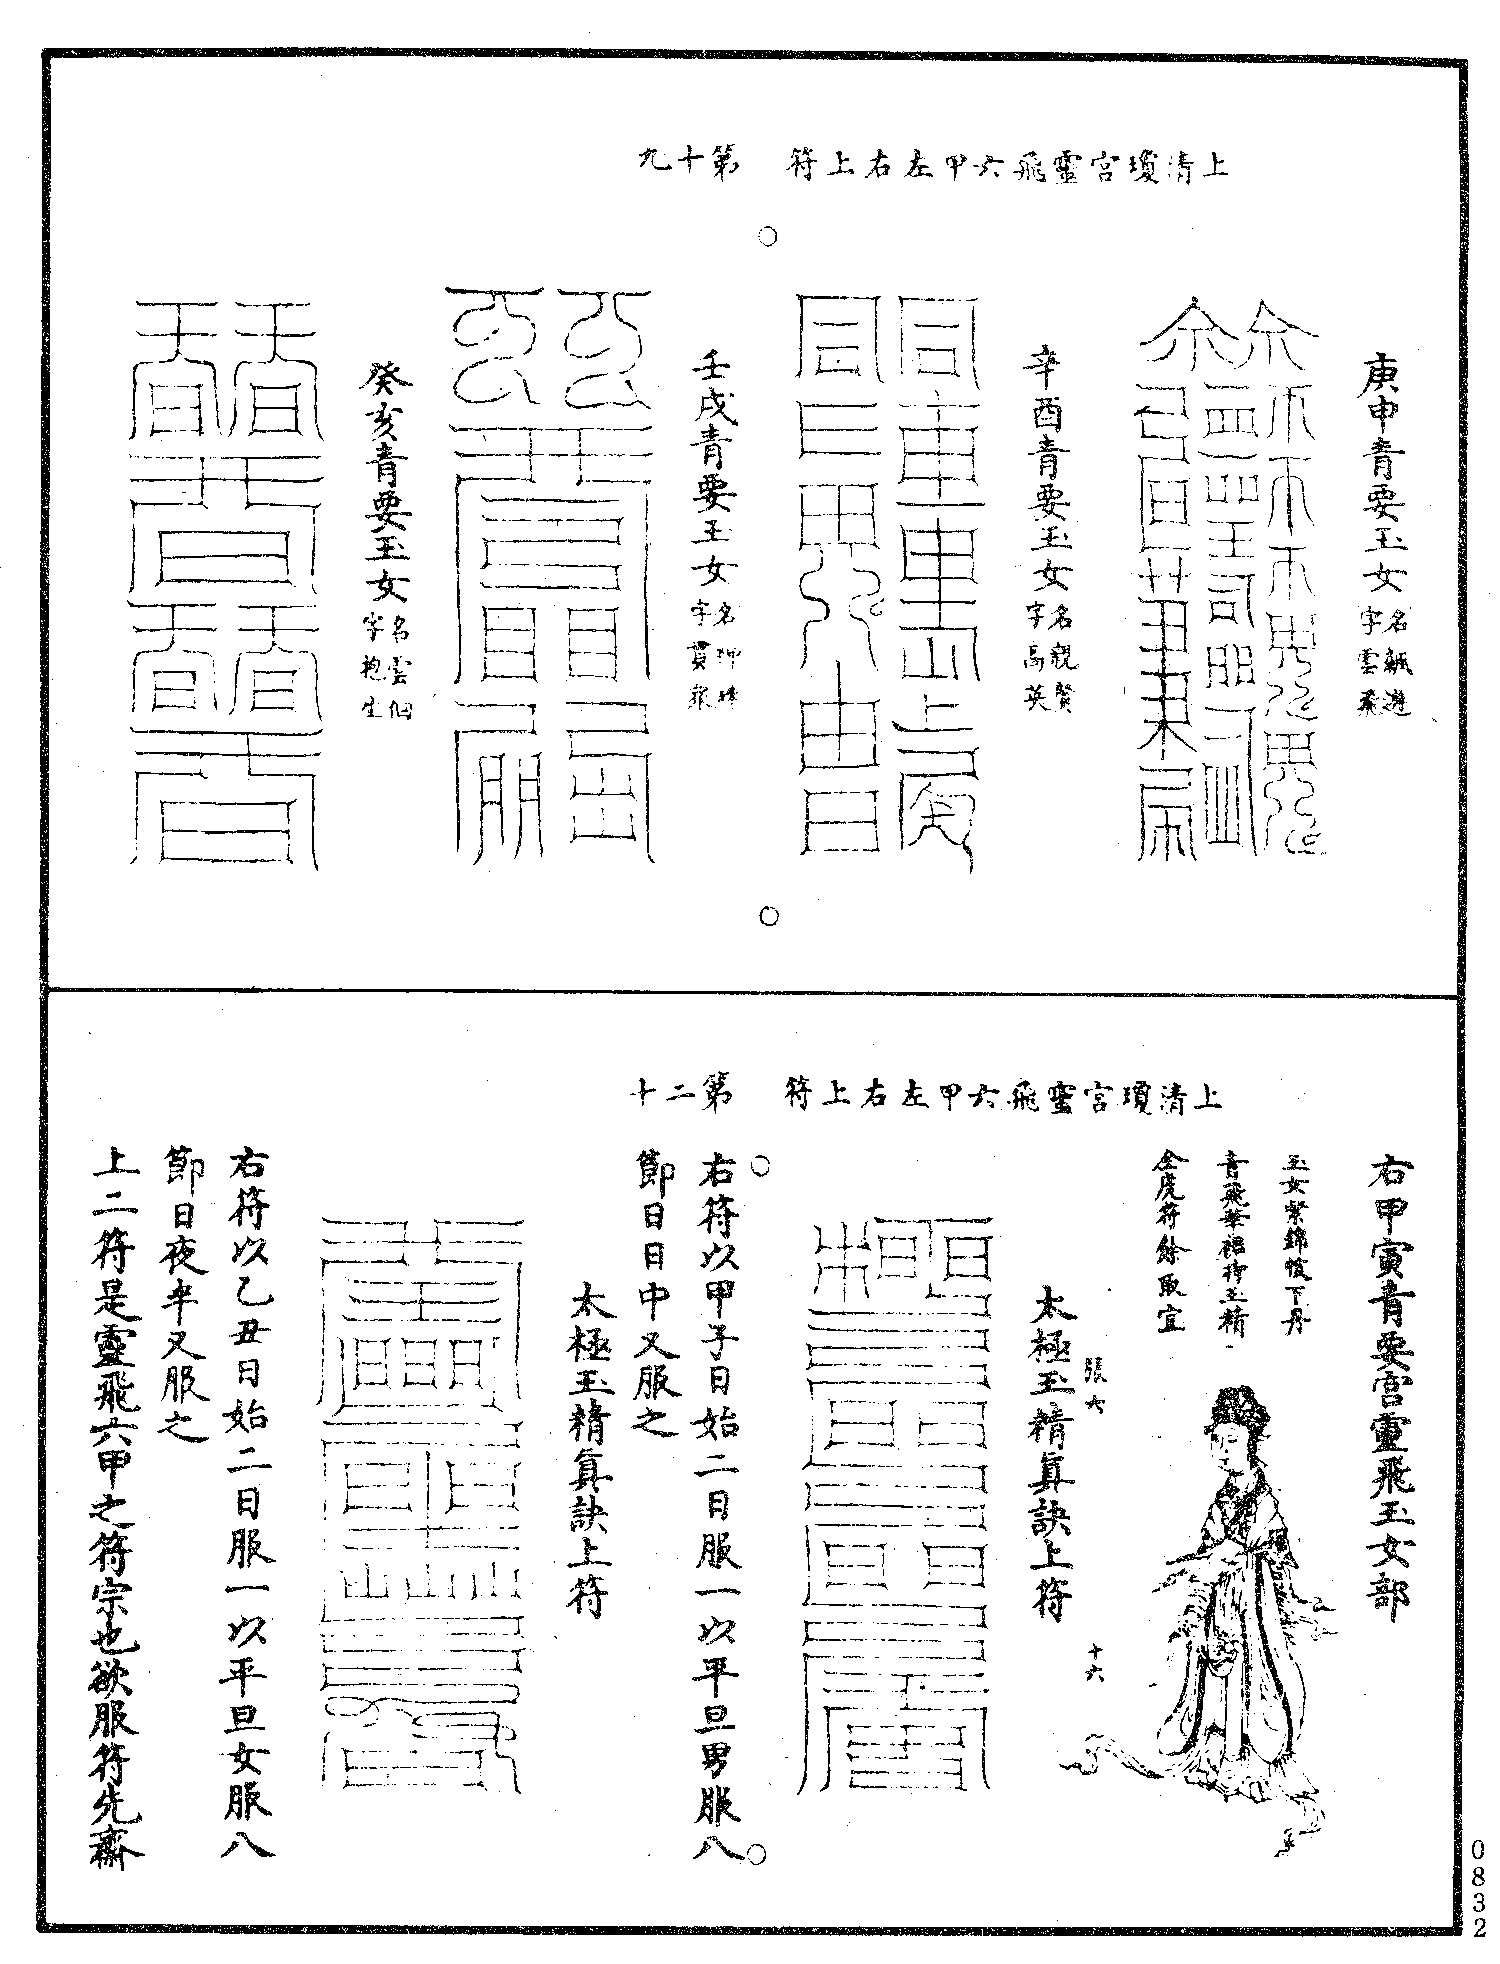 上清瓊宮靈飛六甲左右上符 第十九
庚申青要玉女 名飄遊 字雲飛
辛酉青要玉女 名覯賢 字高英
壬戌青要玉女 字貫
癸亥青要玉女 名雲 字抱生
上清瓊宮靈飛六甲左右上符 第二十
右甲寅青要宮靈飛玉女部
玉女紫錦帔下丹
青飛華裙 玉精
金虎符餘取宜
張六
十六
太極玉精真訣上符
右符以甲子日始二日服一以平旦男服八
節日日中又服之
太極玉精真訣上符
右符以乙丑日始二日服一以平旦女服八
節日夜半又服之
上二符是靈飛六甲之符宗也欲服符先齋
0832